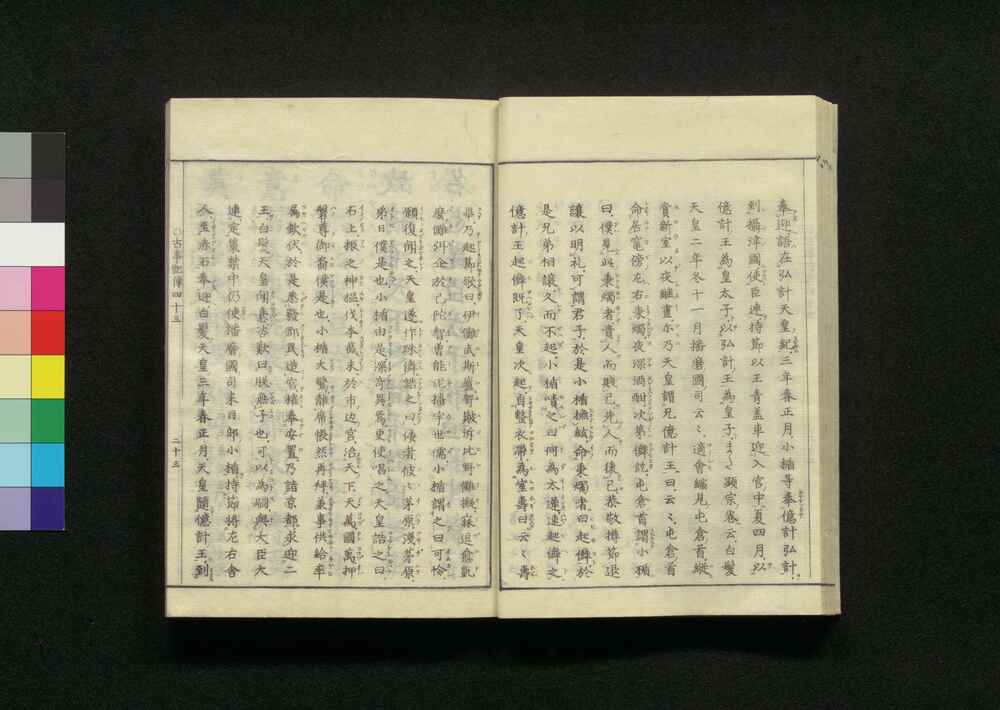 奉迎語在弘計天皇紀三年春正月小楯等奉億計弘計
到攝津國使臣連持節以王青蓋車迎入宮中夏四月以
億計王為皇太子以弘計王為皇子また顕宗卷云白髮
天皇二年冬十一月播磨國司云々適會縮見屯倉首縱
賞新室以夜継晝尓乃天皇謂兄億計王曰云々屯倉首
命居竈傍左右秉燭夜深酒酣次第儛訖屯倉首謂小楯
曰僕見此秉燭者貴人而賤己先人而後己恭敬撙節退
讓以明礼可謂君子於是小楯撫絃命秉燭者曰起儛於
是兄弟相讓久而不起小楯嘖之曰何為太遲速起儛之
億計王起儛既了天皇次起自整衣帶為室壽曰云々壽
畢乃起節歌曰伊儺武斯盧呵簸泝比野儺擬寐逗愈凱
麼儺弭企於己陀智曹能泥播宇世儒小楯謂之曰可怜
願復聞之天皇遂作殊儛誥之曰倭者彼々茅原淺茅原
弟日僕是也小楯由是深奇異焉更使唱之天皇誥之曰
石上振之神榲伐本截末於市辺宮治天下天萬國萬押
磐尊御裔僕是也小楯大驚離席悵然再拜兼事供給率
属欽伏於是悉發郡民造宮權奉安置乃詣京都求迎二
王白髮天皇聞憙咨歎曰朕無子也可以為嗣與大臣大
連定策禁中仍使播磨國司来目部小楯持節將左右舍
人至赤石奉迎白髮天皇三年春正月天皇隨億計王到
○古事記傳四十三
二十五